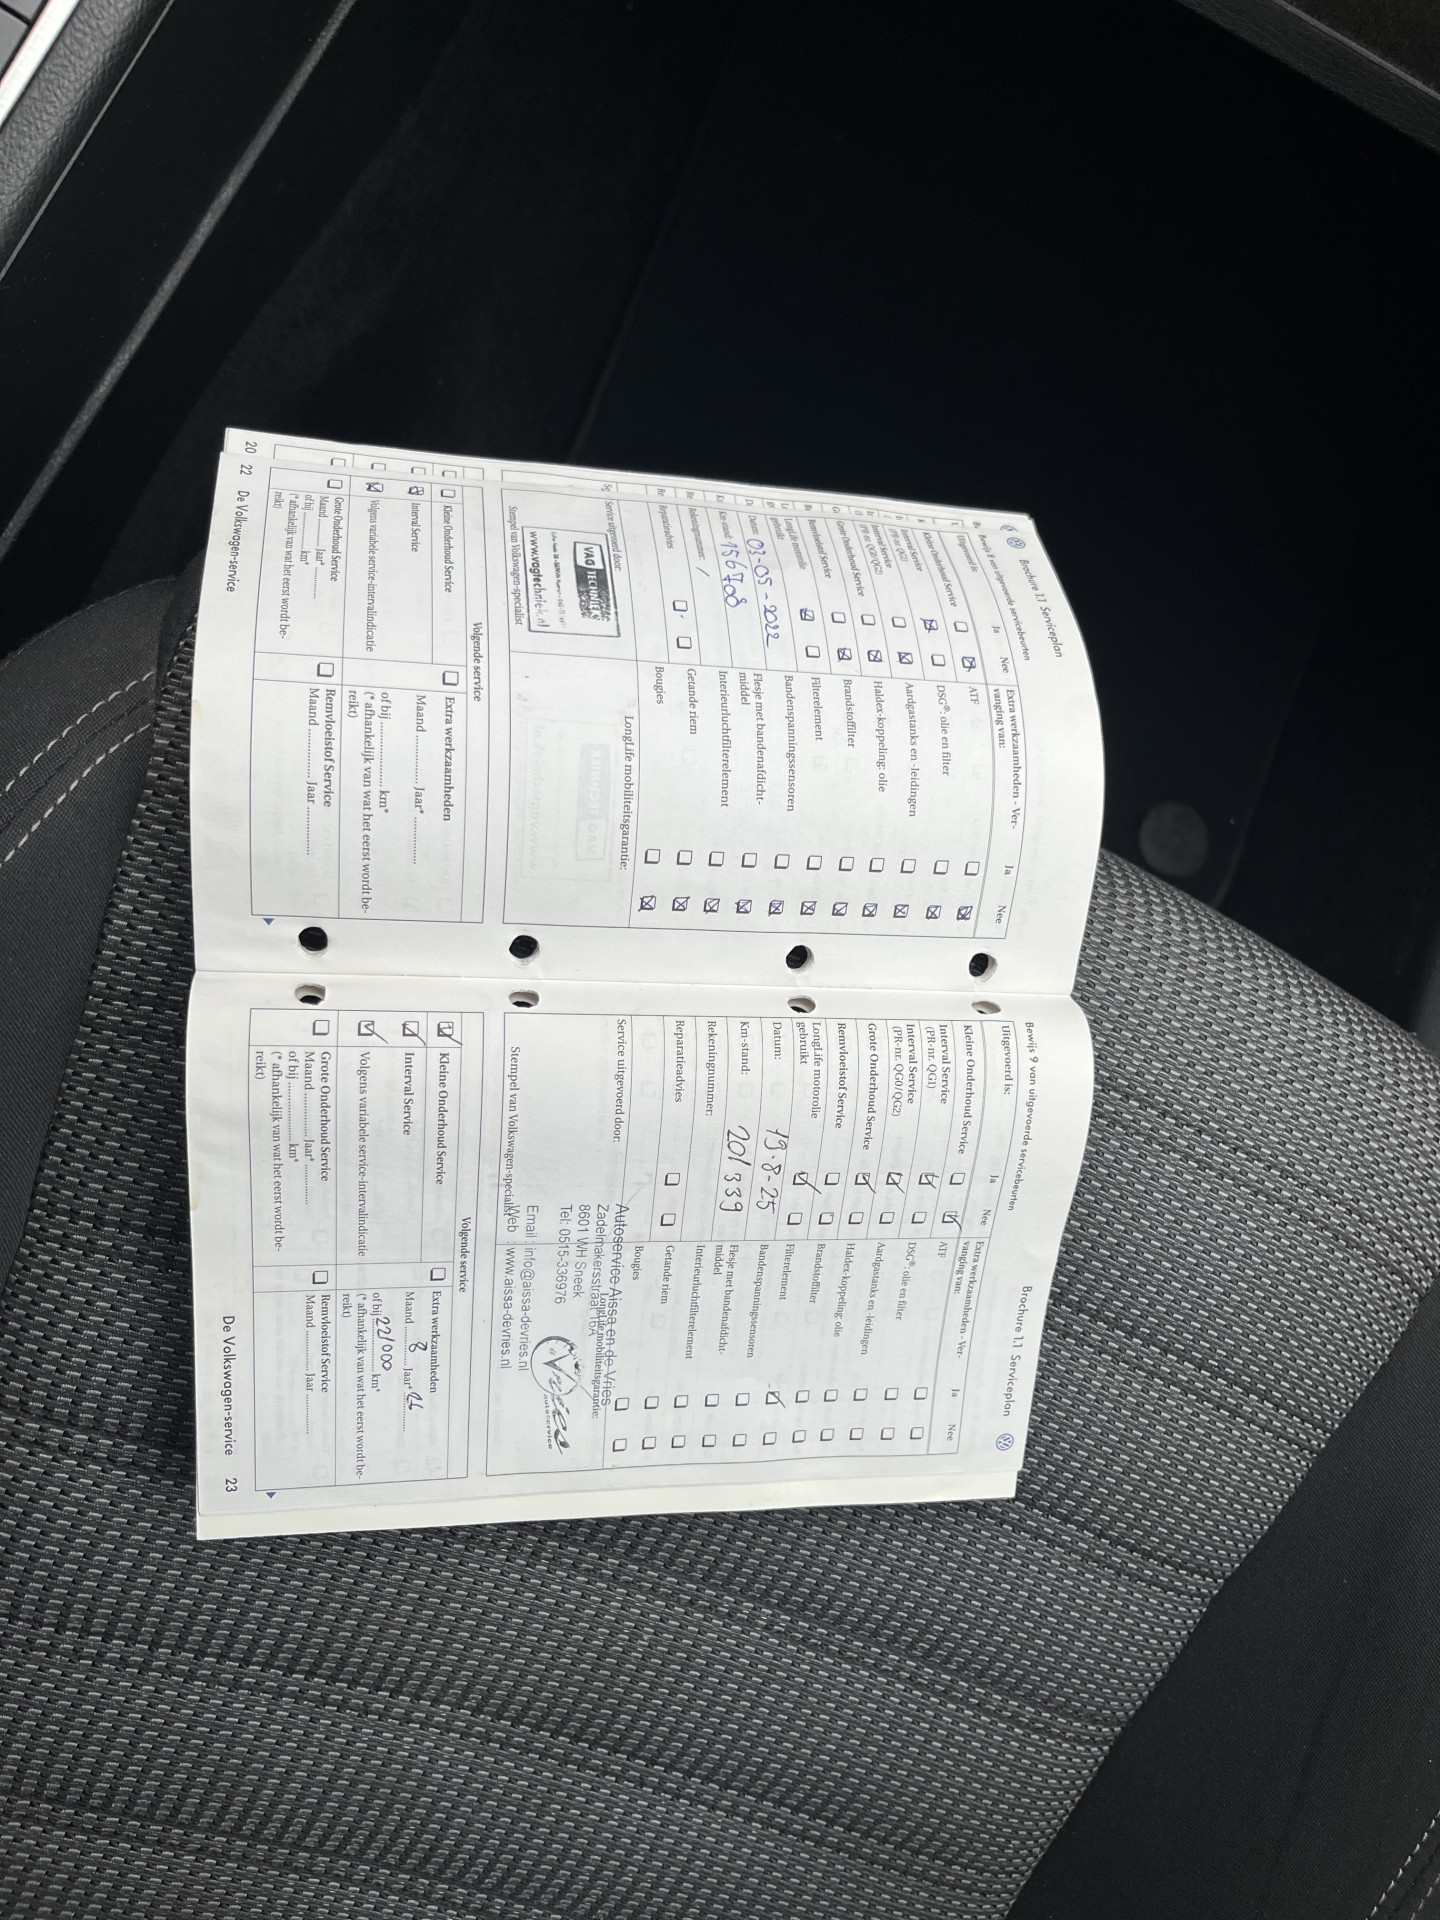 Brochure 1.1 Serviceplan
Bewijs 8 van uitgevoerde servicebeurten
Uitgevoerd is:
Ja
Nee
Kleine Onderhoud Service
Interval Service
(PR-nr. QG1)
Interval Service
(PR-nr. QG0/QG2)
Grote Onderhoud Service
Remvloeistof Service
LongLife motorolie
gebruikt
Datum: 03-05-2022
Km-stand: 156708
Rekeningnummer: /
Reparatieadvies
Extra werkzaamheden - Ver-
vanging van:
Ja
Nee
ATF
DSG®: olie en filter
Aardgastanks en -leidingen
Haldex-koppeling: olie
Brandstoffilter
Filterelement
Bandenspanningssensoren
Flesje met bandenafdicht-
middel
Interieurluchtfilterelement
Getande riem
Bougies
Service uitgevoerd door:
LongLife mobiliteitsgarantie:
VAG TECHNIEK
www.vagtechniek.nl
Stempel van Volkswagen-specialist
Volgende service
Kleine Onderhoud Service
Interval Service
Volgens variabele service-intervalindicatie
Grote Onderhoud Service
Maand ........... Jaar* ...........
of bij ................ km*
(* afhankelijk van wat het eerst wordt be-
reikt)
Extra werkzaamheden
Maand ........... Jaar* ...........
of bij ................ km*
(* afhankelijk van wat het eerst wordt be-
reikt)
Remvloeistof Service
Maand ........... Jaar ...........
20
22 De Volkswagen-service
Brochure 1.1 Serviceplan
Bewijs 9 van uitgevoerde servicebeurten
Uitgevoerd is:
Ja
Nee
Kleine Onderhoud Service
Interval Service
(PR-nr. QG1)
Interval Service
(PR-nr. QG0/QG2)
Grote Onderhoud Service
Remvloeistof Service
LongLife motorolie
gebruikt
Datum: 19-8-25
Km-stand: 201339
Rekeningnummer:
Reparatieadvies
Extra werkzaamheden - Ver-
vanging van:
Ja
Nee
ATF
DSG®: olie en filter
Aardgastanks en -leidingen
Haldex-koppeling: olie
Brandstoffilter
Filterelement
Bandenspanningssensoren
Flesje met bandenafdicht-
middel
Interieurluchtfilterelement
Getande riem
Bougies
Service uitgevoerd door:
LongLife mobiliteitsgarantie:
Autoservice Aissa en de Vries
Zadelmakersstraat 16A
8601 WH Sneek
Tel: 0515-336976
Email : info@aissa-devries.nl
Web : www.aissa-devries.nl
autoservice
Stempel van Volkswagen-specialist
Volgende service
Kleine Onderhoud Service
Interval Service
Volgens variabele service-intervalindicatie
Grote Onderhoud Service
Maand ........... Jaar* ...........
of bij ................ km*
(* afhankelijk van wat het eerst wordt be-
reikt)
Extra werkzaamheden
Maand 8 Jaar* 26
of bij 221000 km*
(* afhankelijk van wat het eerst wordt be-
reikt)
Remvloeistof Service
Maand ........... Jaar ...........
De Volkswagen-service 23